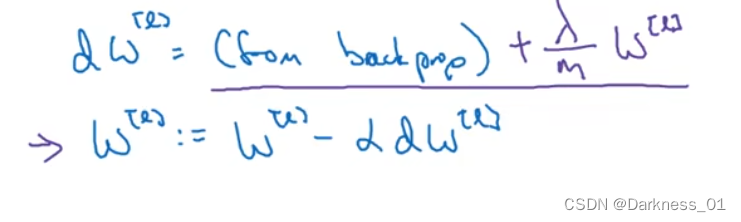 dW^[l] = (from backprop) + λ/m W^[l]
→ W^[l] := W^[l] - α dW^[l]
CSDN @Darkness_01